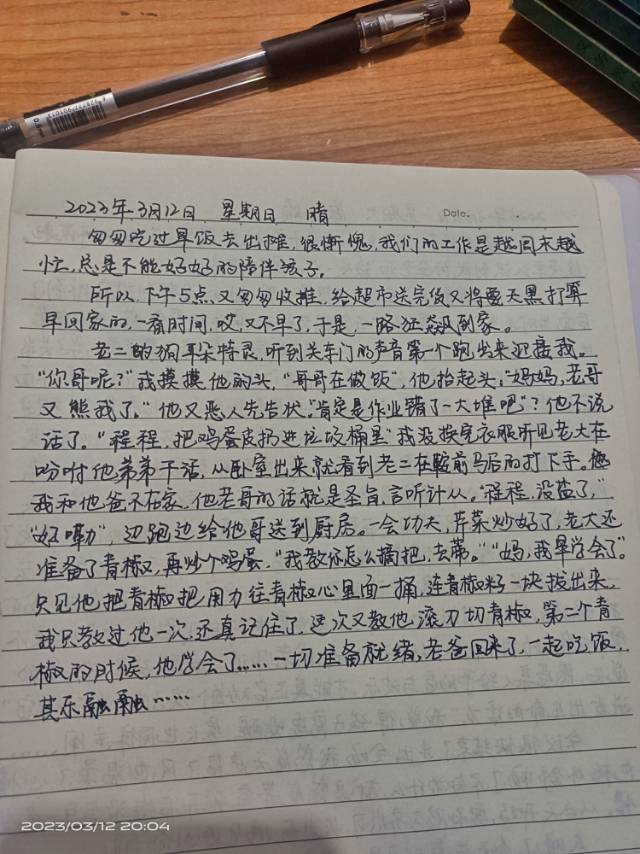 2023年3月12日 星期日 晴
Date.
匆匆吃过早饭去出摊，很惭愧，我们的工作是越周末越
忙，总是不能好好的陪伴孩子。
所以，下午5点，又匆匆收摊，给超市送完货又将要天黑，打算
早回家的，一看时间，哎，又不早了，于是，一路狂飙到家。
老二的狗耳朵特灵，听到关车门的声音第一个跑出来迎接我。
“你哥呢？”我摸摸他的头，“哥哥在做饭”，他抬起头，“妈妈，老哥
又熊我了。”他又恶人先告状，“肯定是作业错了一大堆吧”？他不说
话了。“程程，把鸡蛋皮扔进垃圾桶里”我没换完衣服听见老大在
吩咐他弟弟干活，从卧室出来就看到老二在鞍前马后的打下手。
我和他爸不在家，他老哥的话就是圣旨，言听计从。“程程，没盐了，”
“好嘞”，边跑边给他哥送到厨房。一会功夫，芹菜炒好了，老大还
准备了青椒，再炒个鸡蛋，“我教你怎么摘把，去蒂。”“妈，我早学会了”。
只见他把青椒把用力往青椒心里面一捅，连青椒籽一块拔出来，
我只教过他一次，还真记住了，这次又教他滚刀切青椒，第二个青
椒的时候，他学会了……一切准备就绪，老爸回来了，一起吃饭，
其乐融融……
2023/03/12 20:04